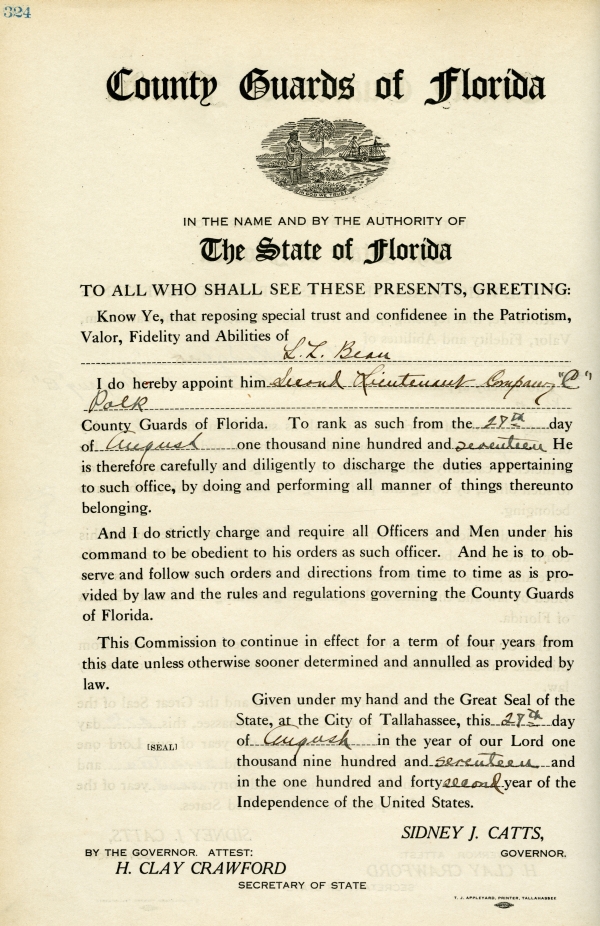 324
County Guards of Florida
IN GOD WE TRUST
IN THE NAME AND BY THE AUTHORITY OF
The State of Florida
TO ALL WHO SHALL SEE THESE PRESENTS, GREETING:
Know Ye, that reposing special trust and confidenee in the Patriotism,
Valor, Fidelity and Abilities of
L. L. Bean
I do hereby appoint him Second Lieutenant Company "C"
Polk
County Guards of Florida. To rank as such from the 27th day
of August one thousand nine hundred and seventeen He
is therefore carefully and diligently to discharge the duties appertaining
to such office, by doing and performing all manner of things thereunto
belonging.
And I do strictly charge and require all Officers and Men under his
command to be obedient to his orders as such officer. And he is to ob-
serve and follow such orders and directions from time to time as is pro-
vided by law and the rules and regulations governing the County Guards
of Florida.
This Commission to continue in effect for a term of four years from
this date unless otherwise sooner determined and annulled as provided by
law.
Given under my hand and the Great Seal of the
State, at the City of Tallahassee, this 27th day
[SEAL] of August in the year of our Lord one
thousand nine hundred and seventeen and
in the one hundred and forty second year of the
Independence of the United States.
SIDNEY J. CATTS,
BY THE GOVERNOR. ATTEST: GOVERNOR.
H. CLAY CRAWFORD
SECRETARY OF STATE
T. J. APPLEYARD, PRINTER, TALLAHASSEE